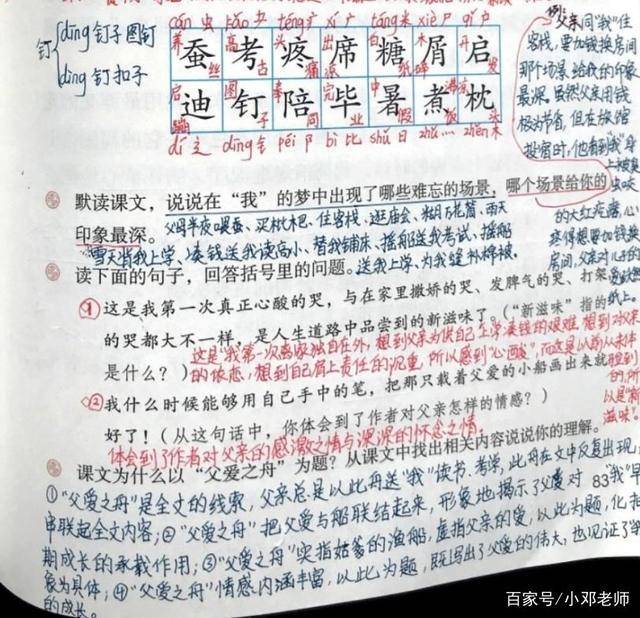 钉{dīng 钉子 图钉
dìng 钉扣子
cán 虫 kǎo 耂 téng 疒 xí 广 táng 米 xiè 尸 qǐ 户
蚕 考 疼 席 糖 屑 启
迪 钉 陪 毕 暑 煮 枕
dí 辶 dīng 钅 péi 阝 bì 比 shǔ 日 zhǔ 灬 zhěn 木
例：父亲同“我”住
客栈，要加钱换房间
那个场景，给我的印象
最深。虽然父亲用钱
极为节省，但在旅馆
投宿时，他看到“我”身
上被臭虫咬
的大红疙瘩，心
疼得想要加钱换
房间，父亲对儿子的
默读课文，说说在“我”的梦中出现了哪些难忘的场景，哪个场景给你的
印象最深。
父母半夜喂蚕、买枇杷、住客栈、逛庙会、糊万花筒、雨天
雪天背我上学、凑钱送我读高小、替我铺床、摇船送我考试、摇船
送我上学、为我缝补棉被。
读下面的句子，回答括号里的问题。
①这是我第一次真正心酸的哭，与在家里撒娇的哭、发脾气的哭、打架
的哭都大不一样，是人生道路中品尝到的新滋味了。（“新滋味”指的
是什么？）
这是“我”第一次离家独自在外，想到父亲为供自己上学凑钱的艰难，想到对父亲
的依恋，想到自己肩上责任的沉重，所以感到“心酸”，而这是以前从未体
验到
的，所
以是“新
滋味”。
②我什么时候能够用自己手中的笔，把那只载着父爱的小船画出来就
好了！（从这句话中，你体会到了作者对父亲怎样的情感？）
体会到了作者对父亲的感激之情与深深的怀念之情。
课文为什么以“父爱之舟”为题？从课文中找出相关内容说说你的理解。
①“父爱之舟”是全文的线索，父亲总是以此舟送“我”读书、考学，此舟在文中反复出现，
83
串联起全文内容；②“父爱之舟”把父爱与船联结起来，形象地揭示了父爱对“我”
期成长的承载作用；③“父爱之舟”实指姑爹的渔船，虚指父亲的爱，以此为题，化
象为具体；④“父爱之舟”情感内涵丰富，以此为题，既写出了父爱的伟大，也见证了
的成长。
百家号/小邓老师